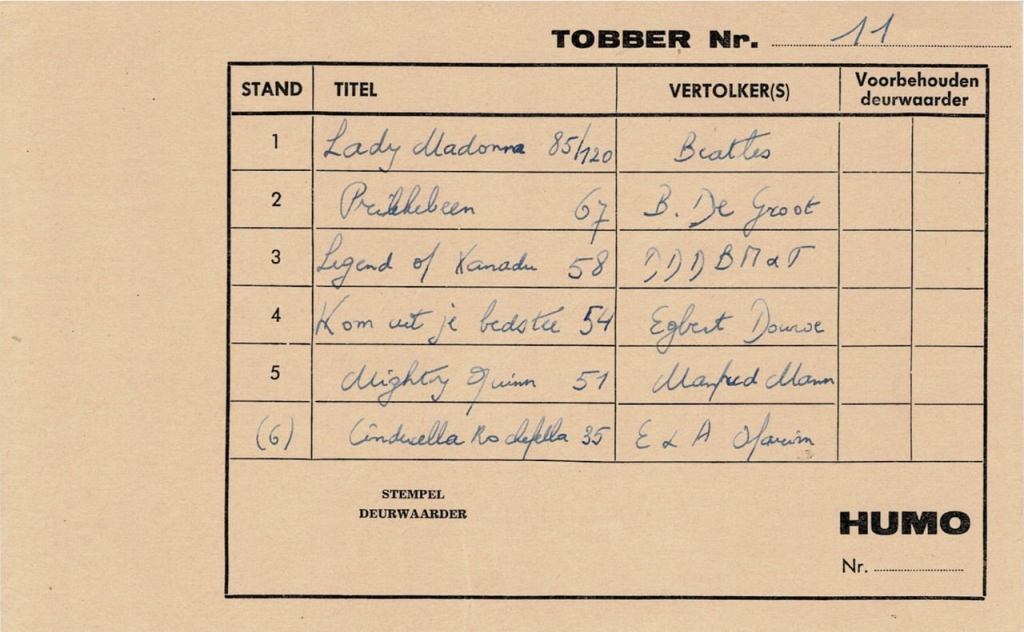 TOBBER Nr. 11
STAND TITEL VERTOLKER(S) Voorbehouden deurwaarder
1 Lady Madonna 85/120 Beatles
2 Prikkebeen 67 B. De Groot
3 Legend of Xanadu 58 DDDBM&T
4 Kom uit je bedstee 54 Egbert Douwe
5 Mighty Quinn 51 Manfred Mann
(6) Cinderella Rockefella 35 E & A Ofarim
STEMPEL
DEURWAARDER
HUMO
Nr.